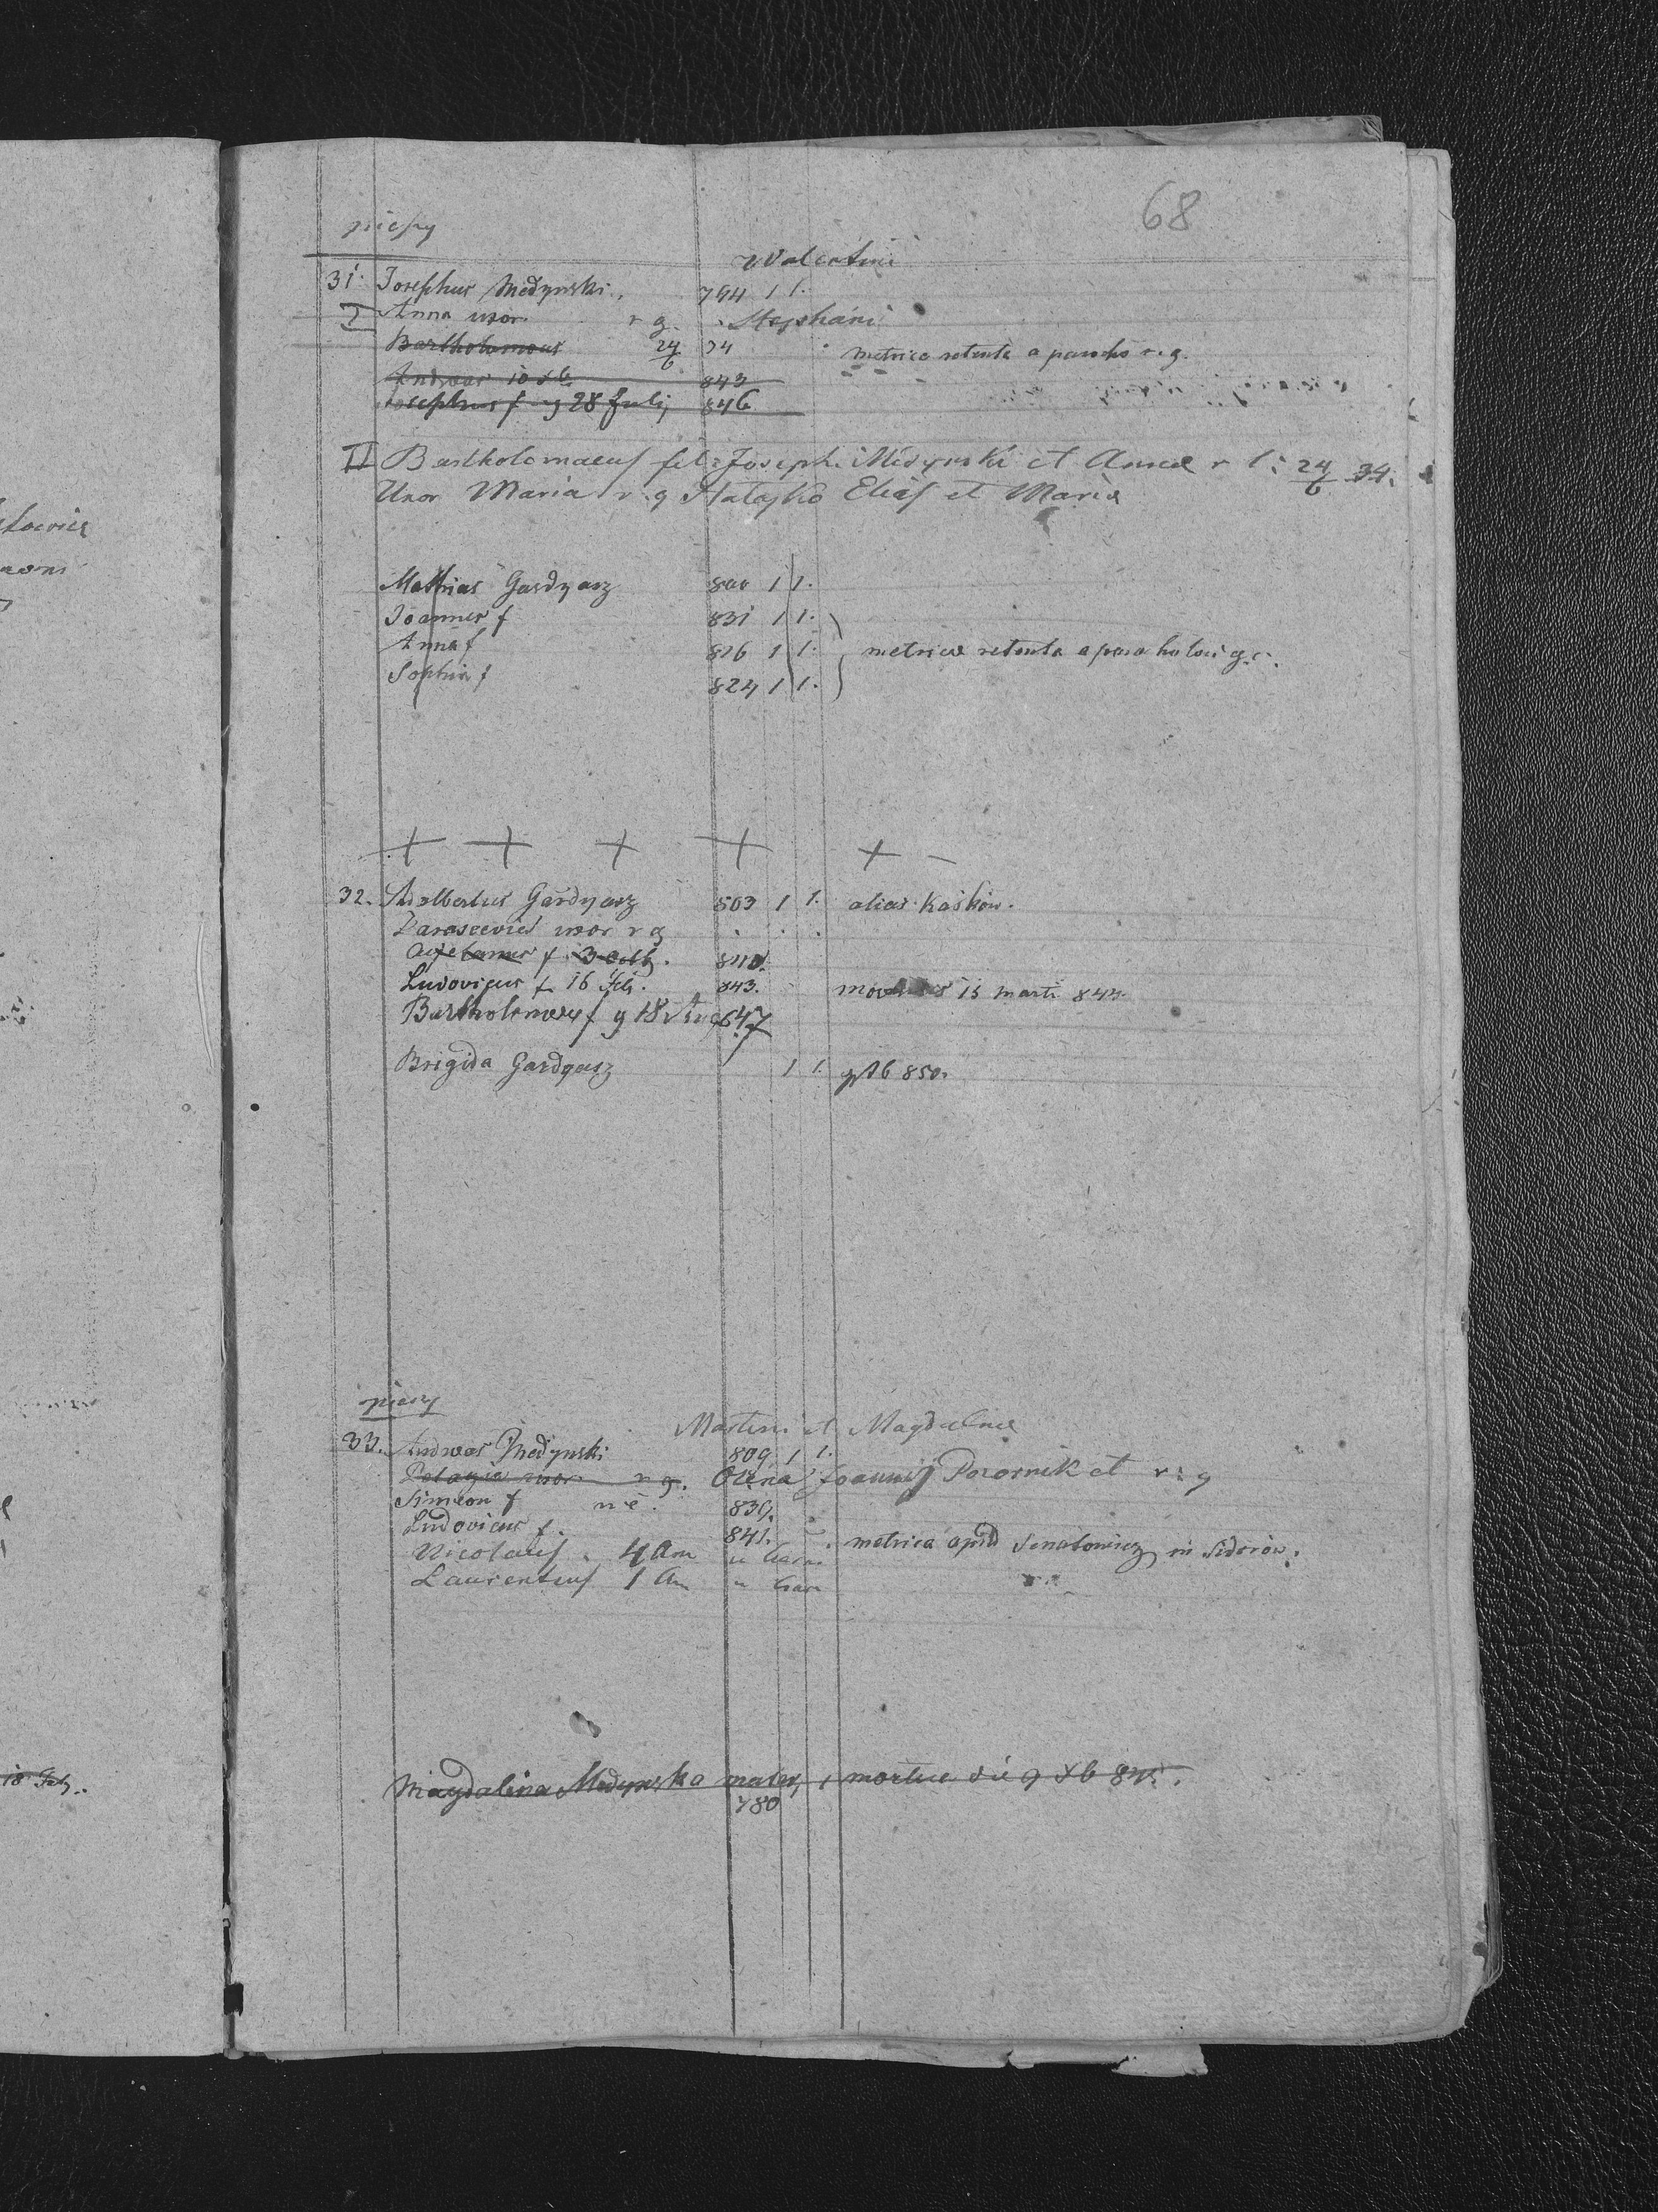 68
pieszy
Walentini
31. Josephus Medynski. 794 1 1.
I Anna uxor. r g. Stephani
Bartholomeus 24/6 34 metrica retenta a parocho r. g.
Andreas 10 Xb 843
Josephus f g 28 Julij 846
II Bartholomaeus fil: Josephi Medynski et Annae r l: 24/6 34.
Uxor Maria r. g Hatajko Eliae et Maria
Mathias Gardyasz 800 1 1.
Joannes f 831 1 1.
Anna f 816 1 1. metricae retenta a parocho loci g. r.
Sophia f 824 1 1.
+ + + + + -
32. Adalbertus Gardyasz 803 1 1. alias Kaśków.
Parascevia uxor r g
f 3 Octb. 840.
Ludovicus f 16 Feb. 843. 15 Marti 844.
Bartholomeus f g 18 Aug 847
Brigida Gardyasz 1 1. 850.
pieszy
Martini et Magdalena
33. Andreas Medynski 809 1 1.
Pelagia uxor r g. Olena Joannis et r: g
Simeon f n e. 839.
Ludovicus f. 841. metrica apud Senatowicz in Sidorów.
Nicolaus 4 Am
Laurentius 1 Am
Magdalena Medynska mater 1 mortua die 9 Xb 845.
780
18 Feb.